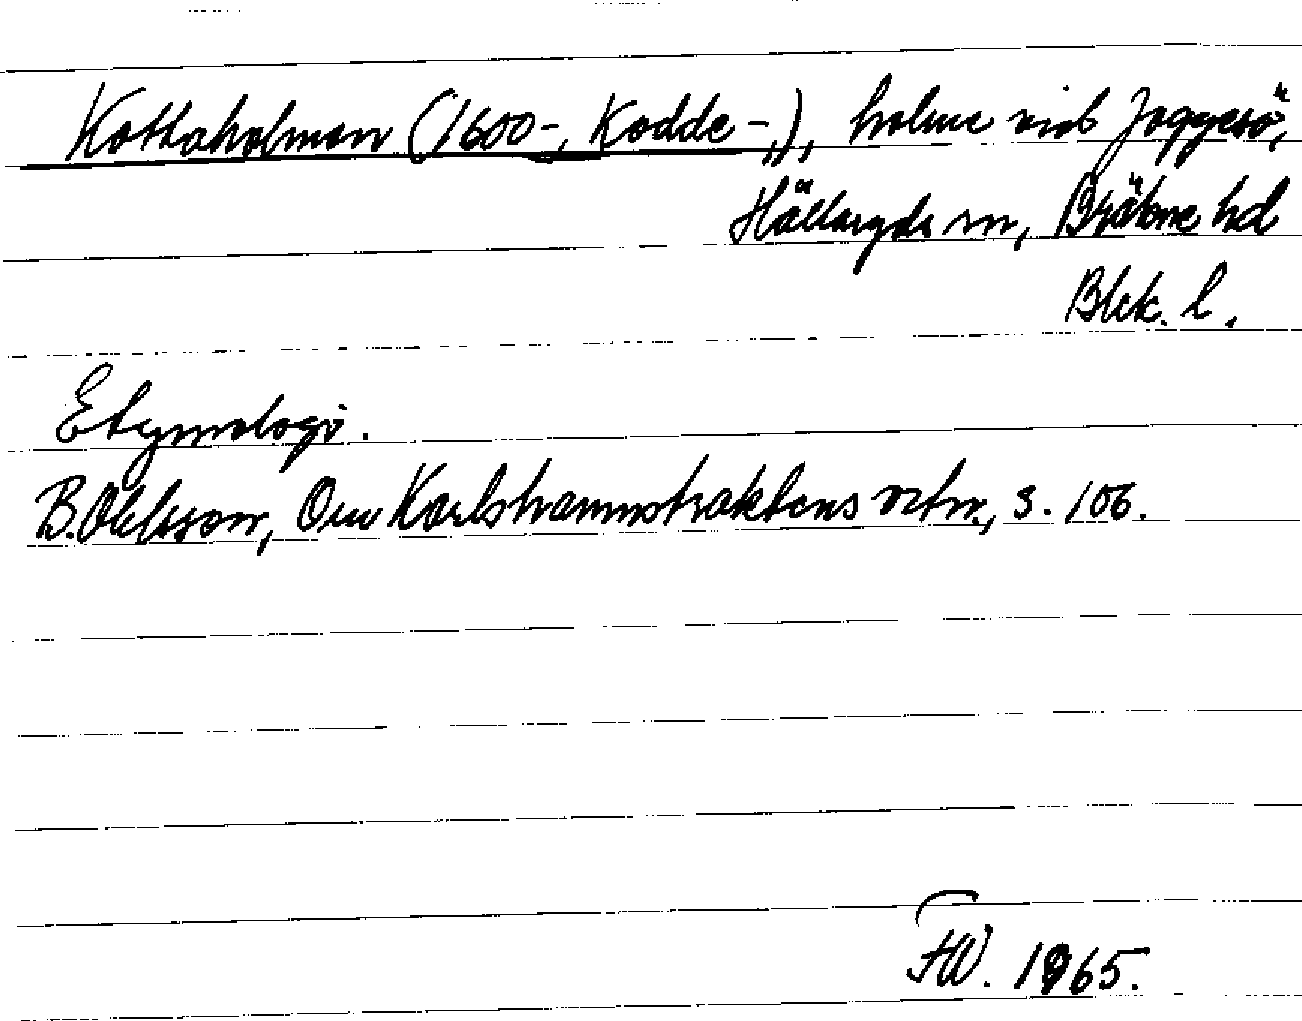 Kottaholmen (1600-, Kodde-„), holme vid Joggesö,
Hällaryds sn, Bräkne hd
Blek. l.
Etymologi.
B. Ohlsson, Om Karlshamnstraktens ortn., s. 106.
FW. 1965.